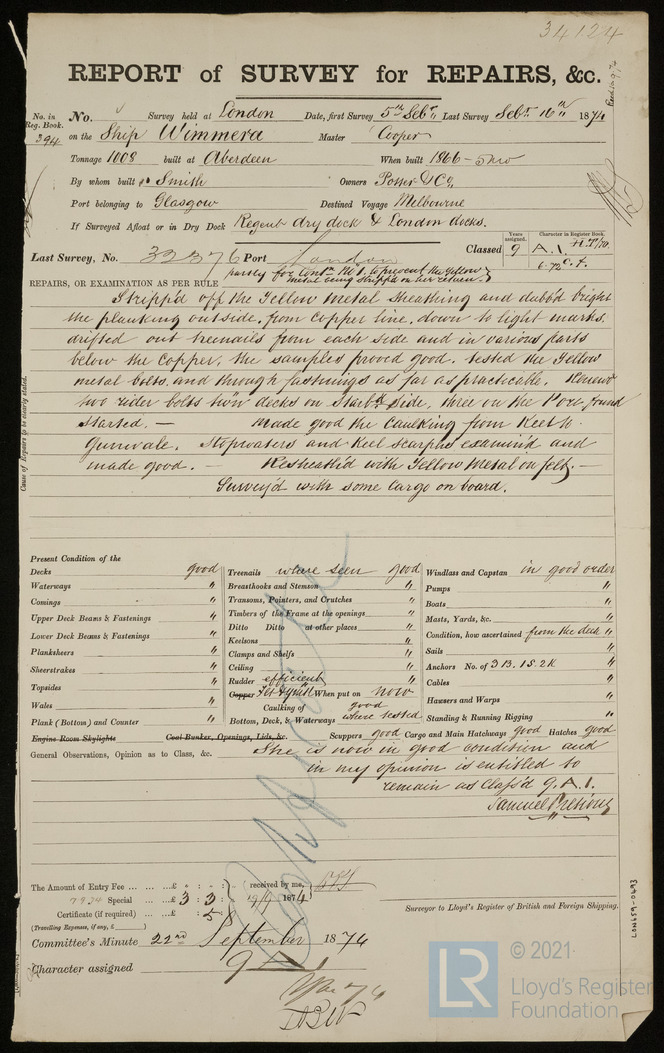 34124
REPORT of SURVEY for REPAIRS, &c.
No. in Reg. Book. 394
No. Survey held at London Date, first Survey 5th Sebt. Last Survey Sebt. 16th 1874
on the Ship Wimmera Master Cooper
Tonnage 1008 built at Aberdeen When built 1866 - 5mo
By whom built Smith Owners Potter & Co.
Port belonging to Glasgow Destined Voyage Melbourne
If Surveyed Afloat or in Dry Dock Regent dry dock & London docks.
Last Survey, No. 32376 Port London Classed
Years assigned. 9
Character in Register Book. A.1. H.T/70.
6.72 c.f.
partly for Contn. No 1. to prevent the Yellow
metal being stripp'd on her return.
REPAIRS, OR EXAMINATION AS PER RULE
Cause of Repairs to be clearly stated.
Stripp'd off the Yellow Metal sheathing and dubb'd bright
the planking outside, from Copper line, down to light marks.
drifted out treenails from each side and in various parts
below the Copper, the samples proved good. tested the Yellow
metal bolts, and through fastnings as far as practicable. Renew'd
two rider bolts tw'n decks on Starb'd Side, three on the Port, found
started. — made good the caulking from Keel to
Gunwale. Stopwaters and Keel scarphs examin'd and
made good. — Resheath'd with Yellow Metal on felt. —
Survey'd with some Cargo on board.
Present Condition of the
Decks good
Waterways "
Comings "
Upper Deck Beams & Fastenings "
Lower Deck Beams & Fastenings "
Planksheers "
Sheerstrakes "
Topsides "
Wales "
Plank (Bottom) and Counter "
Engine Room Skylights
Coal Bunker, Openings, Lids, &c.
Treenails where seen good
Breasthooks and Stemson "
Transoms, Pointers, and Crutches "
Timbers of the Frame at the openings "
Ditto Ditto at other places "
Keelsons "
Clamps and Shelfs "
Ceiling "
Rudder efficient
Copper When put on now
Caulking of good
Bottom, Deck, & Waterways where tested
Scuppers good Cargo and Main Hatchways good Hatches good
Windlass and Capstan in good order
Pumps "
Boats "
Masts, Yards, &c. "
Condition, how ascertained from the deck "
Sails "
Anchors No. of 3 B. 1 S. 2 K "
Cables "
Hawsers and Warps "
Standing & Running Rigging "
General Observations, Opinion as to Class, &c. She is now in good condition and
in my opinion is entitled to
remain as Class'd 9. A. 1.
The Amount of Entry Fee £ " : " :
Special £ 3 : 3 :
Certificate (if required) £ : 5
received by me, 19/9 1874
(Travelling Expenses, if any, £ )
Surveyor to Lloyd's Register of British and Foreign Shipping.
Committee's Minute 22nd September 1874
Character assigned 9 A 1
LON659-0693
LR
© 2021
Lloyd's Register
Foundation